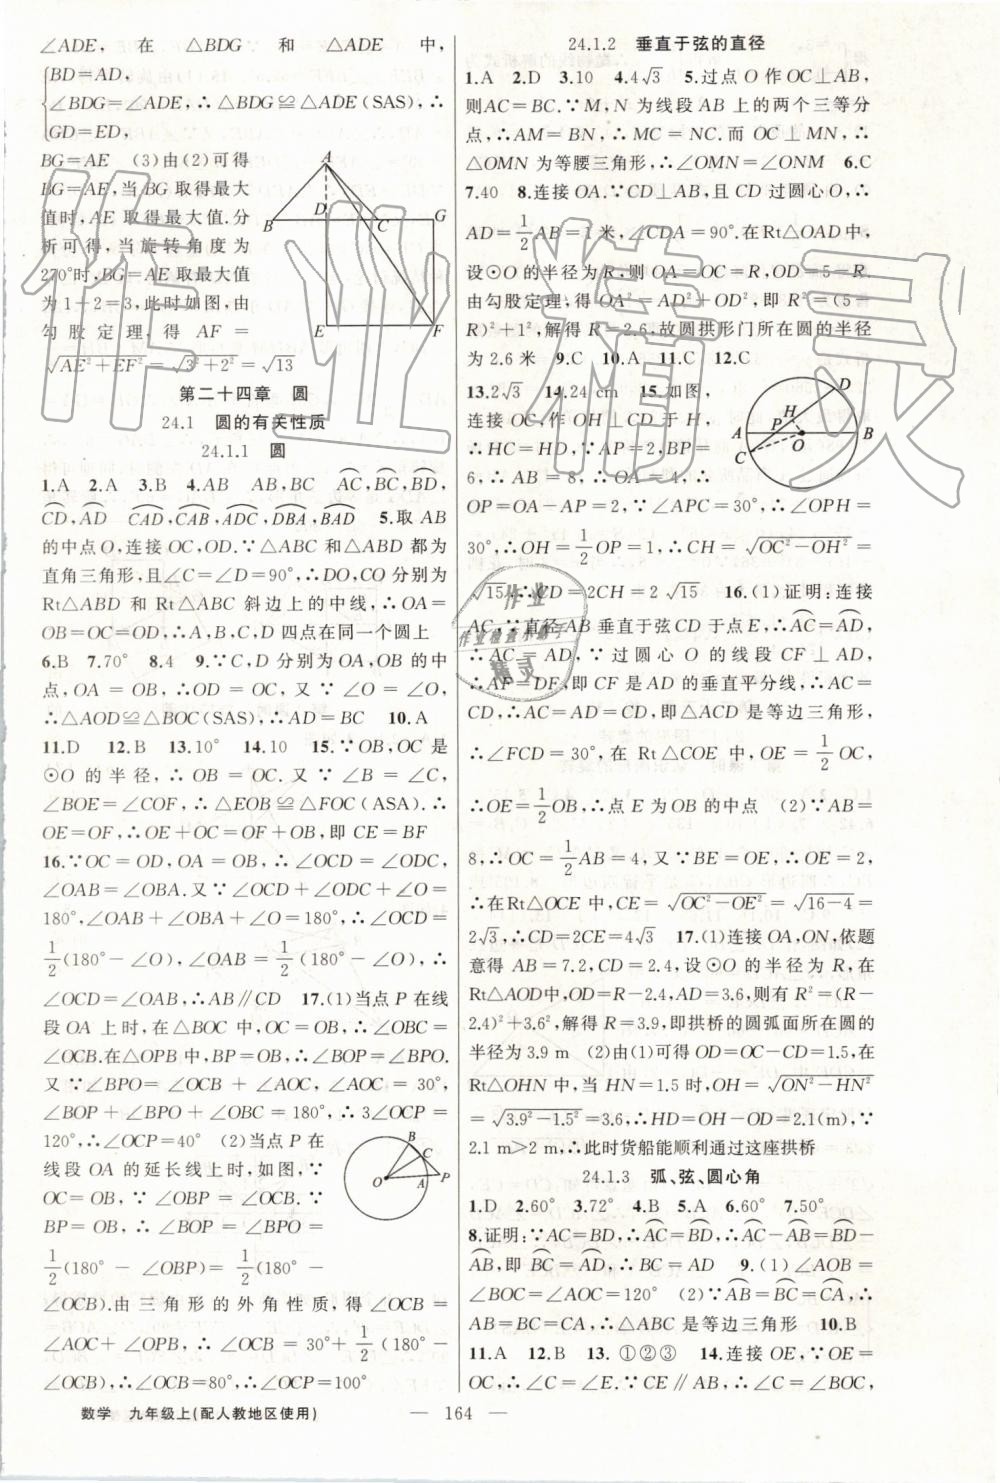 ∠ADE, 在 △BDG 和 △ADE 中,
BD=AD,
∠BDG=∠ADE,∴△BDG≌△ADE(SAS),∴
GD=ED,
BG=AE (3)由(2)可得
BG=AE,当BG取得最大
值时,AE取得最大值.分
析可得,当旋转角度为
270°时,BG=AE取最大值
为1+2=3,此时如图,由
勾股定理,得 AF=
√(AE²+EF²)=√(3²+2²)=√13
A
B D C G
E F
第二十四章 圆
24.1 圆的有关性质
24.1.1 圆
1.A 2.A 3.B 4.AB AB,BC AC,BC,BD,
CD,AD CAD,CAB,ADC,DBA,BAD 5.取AB
的中点O,连接OC,OD.∵△ABC和△ABD都为
直角三角形,且∠C=∠D=90°,∴DO,CO分别为
Rt△ABD 和 Rt△ABC 斜边上的中线,∴OA=
OB=OC=OD,∴A,B,C,D四点在同一个圆上
6.B 7.70° 8.4 9.∵C,D分别为OA,OB的中
点,OA=OB,∴OD=OC,又∵∠O=∠O,
∴△AOD≌△BOC(SAS),∴AD=BC 10.A
11.D 12.B 13.10° 14.10 15.∵OB,OC是
⊙O的半径,∴OB=OC.又∵∠B=∠C,
∠BOE=∠COF,∴△EOB≌△FOC(ASA).∴
OE=OF,∴OE+OC=OF+OB,即CE=BF
16.∵OC=OD,OA=OB,∴∠OCD=∠ODC,
∠OAB=∠OBA.又∵∠OCD+∠ODC+∠O=
180°,∠OAB+∠OBA+∠O=180°,∴∠OCD=
1/2(180°-∠O),∠OAB=1/2(180°-∠O),∴
∠OCD=∠OAB,∴AB∥CD 17.(1)当点P在线
段OA上时,在△BOC中,OC=OB,∴∠OBC=
∠OCB.在△OPB中,BP=OB,∴∠BOP=∠BPO.
又∵∠BPO=∠OCB+∠AOC,∠AOC=30°,
∠BOP+∠BPO+∠OBC=180°,∴3∠OCP=
120°,∴∠OCP=40° (2)当点P在
线段OA的延长线上时,如图,∵
OC=OB,∴∠OCB=∠OBC.∵
BP=OB,∴∠BOP=∠BPO=
1/2(180°-∠OBP)=1/2(180°-
∠OCB).由三角形的外角性质,得∠OCB=
∠AOC+∠OPB,∴∠OCB=30°+1/2(180°-
∠OCB),∴∠OCB=80°,∴∠OCP=100°
B
C
O A P
24.1.2 垂直于弦的直径
1.A 2.D 3.10 4.4√3 5.过点O作OC⊥AB,
则AC=BC.∵M,N为线段AB上的两个三等分
点,∴AM=BN,∴MC=NC.而OC⊥MN,∴
△OMN为等腰三角形,∴∠OMN=∠ONM 6.C
7.40 8.连接OA.∵CD⊥AB,且CD过圆心O,∴
AD=1/2AB=1米,∠CDA=90°.在Rt△OAD中,
设⊙O的半径为R,则OA=OC=R,OD=5-R.
由勾股定理,得OA²=AD²+OD²,即R²=(5-
R)²+1²,解得R=2.6,故圆拱形门所在圆的半径
为2.6米 9.C 10.A 11.C 12.C
13.2√3 14.24 cm 15.如图,
连接OC,作OH⊥CD于H,
∴HC=HD.∵AP=2,BP=
6,∴AB=8,∴OA=4,∴
OP=OA-AP=2,∵∠APC=30°,∴∠OPH=
30°,∴OH=1/2OP=1,∴CH=√(OC²-OH²)=
√15,∴CD=2CH=2√15 16.(1)证明:连接
AC,∵直径AB垂直于弦CD于点E,∴AC=AD,
∴AC=AD,∵过圆心O的线段CF⊥AD,
∴AF=DF,即CF是AD的垂直平分线,∴AC=
CD,∴AC=AD=CD,即△ACD是等边三角形,
∴∠FCD=30°,在Rt△COE中,OE=1/2OC,
∴OE=1/2OB,∴点E为OB的中点 (2)∵AB=
8,∴OC=1/2AB=4,又∵BE=OE,∴OE=2,
∴在Rt△OCE中,CE=√(OC²-OE²)=√(16-4)=
2√3,∴CD=2CE=4√3 17.(1)连接OA,ON,依题
意得AB=7.2,CD=2.4,设⊙O的半径为R,在
Rt△AOD中,OD=R-2.4,AD=3.6,则有R²=(R-
2.4)²+3.6²,解得R=3.9,即拱桥的圆弧面所在圆的
半径为3.9 m (2)由(1)可得OD=OC-CD=1.5,在
Rt△OHN中,当HN=1.5时,OH=√(ON²-HN²)
=√(3.9²-1.5²)=3.6,∴HD=OH-OD=2.1(m),∵
2.1 m>2 m,∴此时货船能顺利通过这座拱桥
D
H
A P B
O
C
24.1.3 弧、弦、圆心角
1.D 2.60° 3.72° 4.B 5.A 6.60° 7.50°
8.证明:∵AC=BD,∴AC=BD,∴AC-AB=BD-
AB,即BC=AD,∴BC=AD 9.(1)∠AOB=
∠BOC=∠AOC=120° (2)∵AB=BC=CA,∴
AB=BC=CA,∴△ABC是等边三角形 10.B
11.A 12.B 13.①②③ 14.连接OE,∵OE=
OC,∴∠C=∠OEC,∵CE∥AB,∴∠C=∠BOC,
数学 九年级上(配人教地区使用)
— 164 —
作业精灵
作业
作业检查小助手
精灵